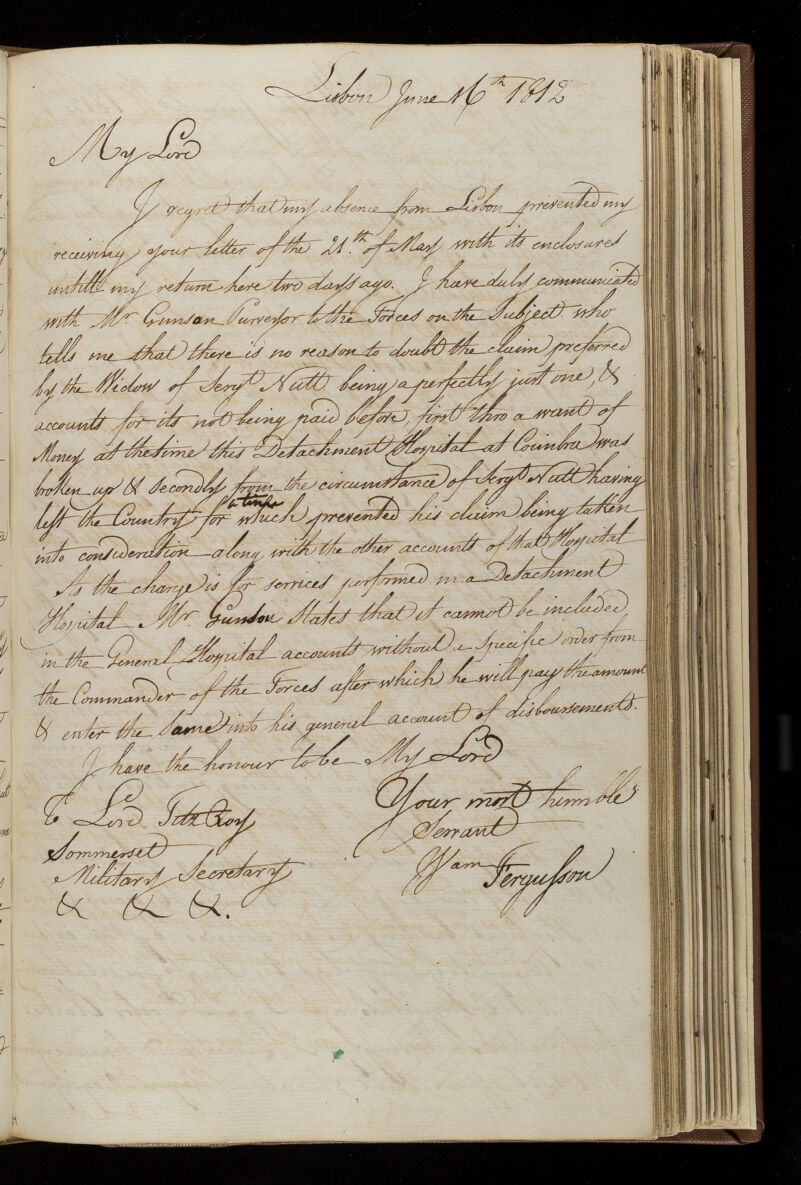 Lisbon June 16th 1812
My Lord
I regret that my absence from Lisbon prevented my
receiving your letter of the 21.th of May with its enclosures
untill my return here two days ago. I have duly communicated
with Mr Gunson Purveyor to the Forces on the Subject who
tells me that there is no reason to doubt the claim preferred
by the Widow of Sergt Nutt being a perfectly just one, &
accounts for its not being paid before, first thro a want of
Money at the time this Detachment Hospital at Coimbra was
broken up & secondly from the circumstance of Sergt Nutt having
left the Country for a time which prevented his claim being taken
into consideration along with the other accounts of that Hospital
As the charge is for services performed in a Detachment
Hospital Mr Gunson States that it cannot be included
in the General Hospital accounts without a specific order from
the Commander of the Forces after which he will pay the amount
& enter the same into his general account of disbursements.
I have the honour to be My Lord
Your most humble
Servant
Wam Fergusson
To Lord Fitz Roy
Sommerset
Military Secretary
& & &.